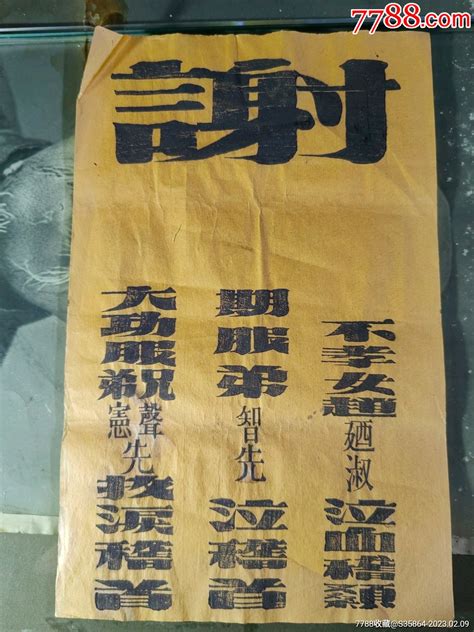 7788.com
謝
不孝女趙廼淑泣血稽顙
期服弟智先泣稽首
大功服兄弟聲憲先抆淚稽首
7788收藏@S35864-2023.02.09